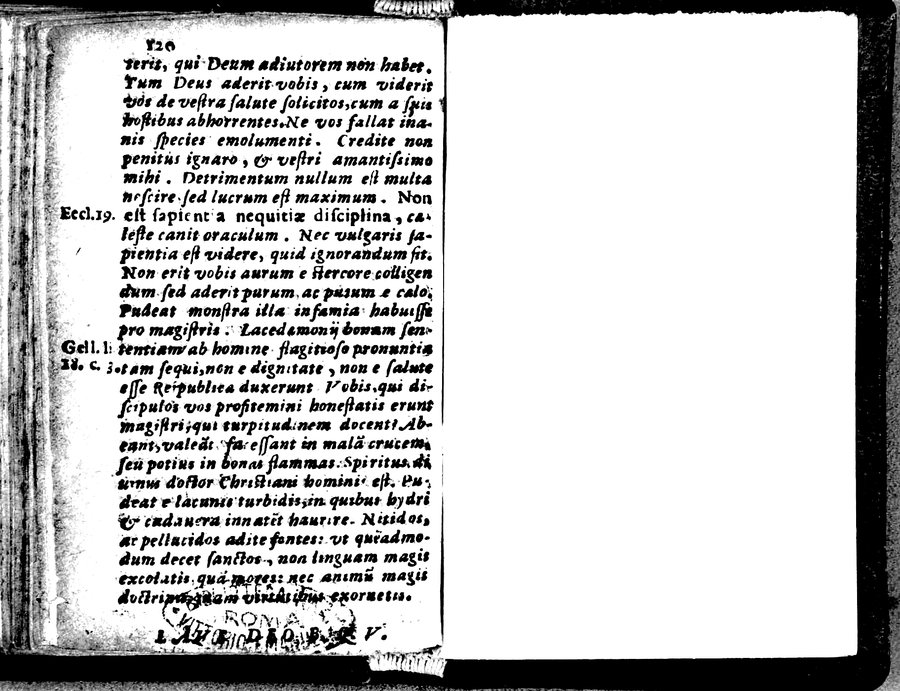 120
terit, qui Deum adiutorem non habet.
Tum Deus aderit vobis, cum viderit
vos de vestra salute solicitos, cum a suis
hostibus abhorrentes. Ne vos fallat ina-
nis species emolumenti. Credite non
penitus ignaro, & vestri amantissimo
mihi. Detrimentum nullum est multa
nescire sed lucrum est maximum. Non
Eccl. 19. est sapientia nequitiæ disciplina, cæ-
leste canit oraculum. Nec vulgaris sa-
pientia est videre, quid ignorandum sit.
Non erit vobis aurum e stercore colligen
dum sed aderit purum, ac putum e cælo.
Pudeat monstra illa infamia habuisse
pro magistris. Lacedæmonij bonam sen-
Gell. li tentiam ab homine flagitioso pronuntia
18. c. 3. tam sequi, non e dignitate, non e salute
esse Reipublicæ duxerunt Vobis, qui di-
scipulos vos profitemini honestatis erunt
magistri, qui turpitudinem docent? Ab-
eant, valeāt facessant in malā crucem,
seu potius in bonas flammas. Spiritus di
uinus doctor Christiani hominis est. Pu-
deat e lacunis turbidis, in quibus hydri
& cadauera innatēt haurire. Nitidos,
ac pellucidos adite fontes: vt quēadmo-
dum decet sanctos, non linguam magis
excolatis, quā mores: nec animū magis
doctrina, quam virtutibus exornetis.
LAVS DEO B. Q. V.
ROMA